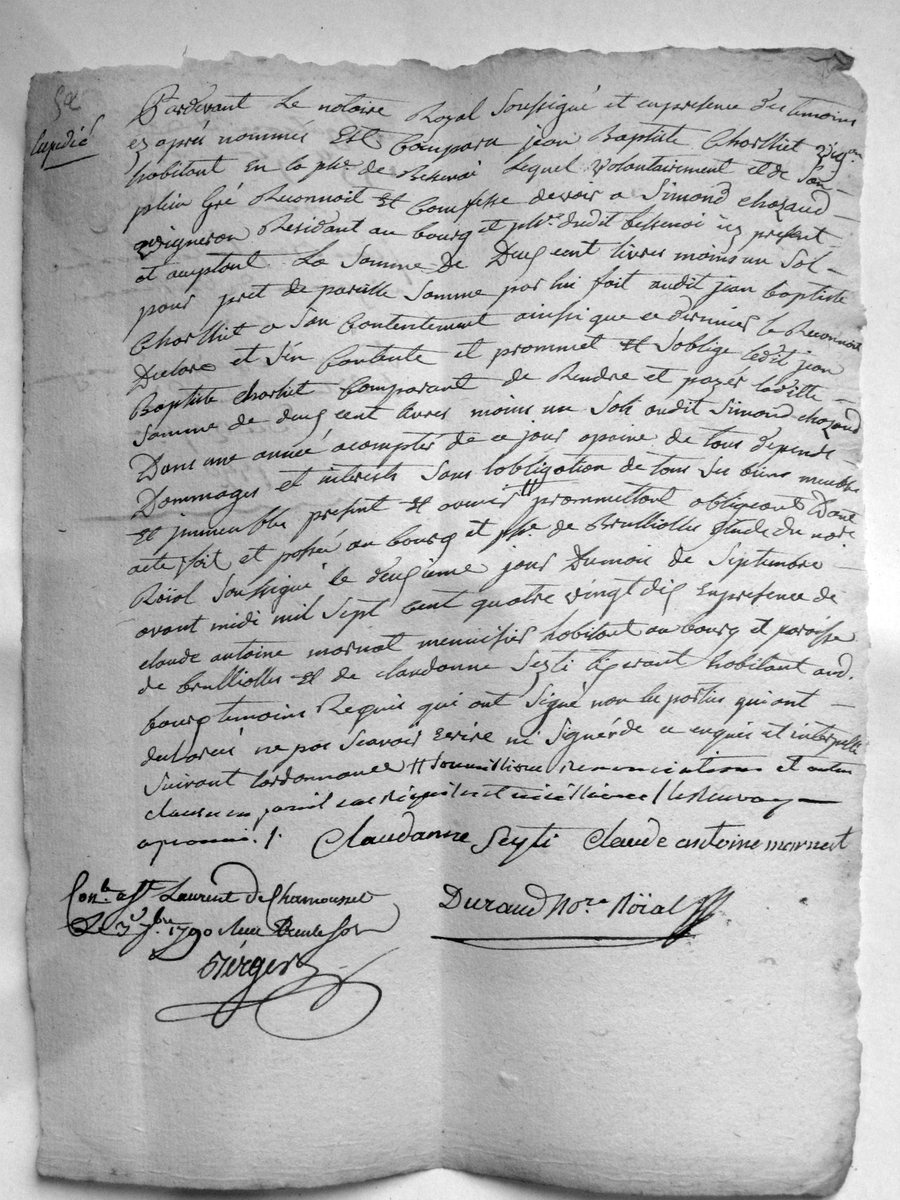 Expedié
Pardevant Le notaire Royal Soussigné et en presence des temoins
cy après nommés Est Comparu jean Baptiste Chorlliet vig.on
habitant En la psse de Bessenai Lequel volontairement et de Son
plein Gré Reconnoit Et Confesse devoir a Simond Chozaud
vigneron Residant au bourg et psse dudit bessenoi icy présent
et acceptant La Somme de Deux cent livres moins un Sol
pour pret de pareille Somme par lui fait audit jean baptiste
Chorlliet a Son Contentement ainsi que ce dernier le Reconnoit
Declare et s'en Contente et prommet Et S'oblige ledit jean
Baptiste Chorliet Comparant de Rendre et payér laditte
Somme de deux cent livres moins un Sols audit Simond Chozaud
Dans une année acomptér de ce jour apeine de tous depends
Dommages et interests Sous l'obligation de tous Ses biens meuble
Et jmmeuble présent Et avenir # prommettant obligeant Dont
acte fait et passé au bourg et psse de Brulliolles étude du nore
Roïal Soussigné le deuxième jour Du mois de Septembre
avant midi mil Sept Cent quatre vingt dix En presence de
claude antoine mornat mennisier habitant au bourg et paroisse
de brulliolles Et de claudanne Seyti tiserant habitant aud.
bourg temoins Requis qui ont Signé non les parties qui ont
declareés ne pas Scavoir Ecrire ni Signér de ce enquis et interpellé
Suivant l'ordonnance # soumissions renonciations et autres
clauses en pareil cas Requises et
approuvé ./.
Claudanne Seyti Claude antoine mornat
Con.lé a St Laurent de Chamousset
Le 3 7bre 1790 Reçu Trente Sols
Durand No.re Roïal